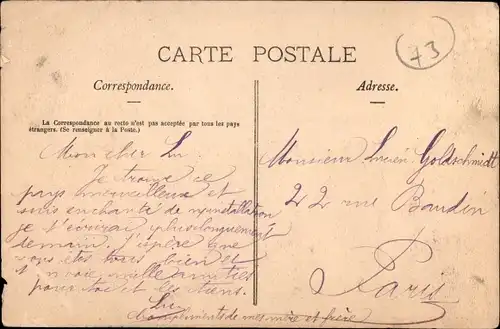 73
CARTE POSTALE
Correspondance.
Adresse.
La Correspondance au recto n'est pas acceptée par tous les pays
étrangers. (Se renseigner à la Poste.)
Mon cher Lu.
Je trouve ce
pays merveilleux et
suis enchanté de installation
je t'écrirai plus longuement
demain. J'espère que
vous êtes tous bien et
t'envoie mille amitiés
pour toi et les tiens.
Lu
Compliments de mes mère et frère
Monsieur Lucien Goldschmidt
22 rue Baudin
Paris